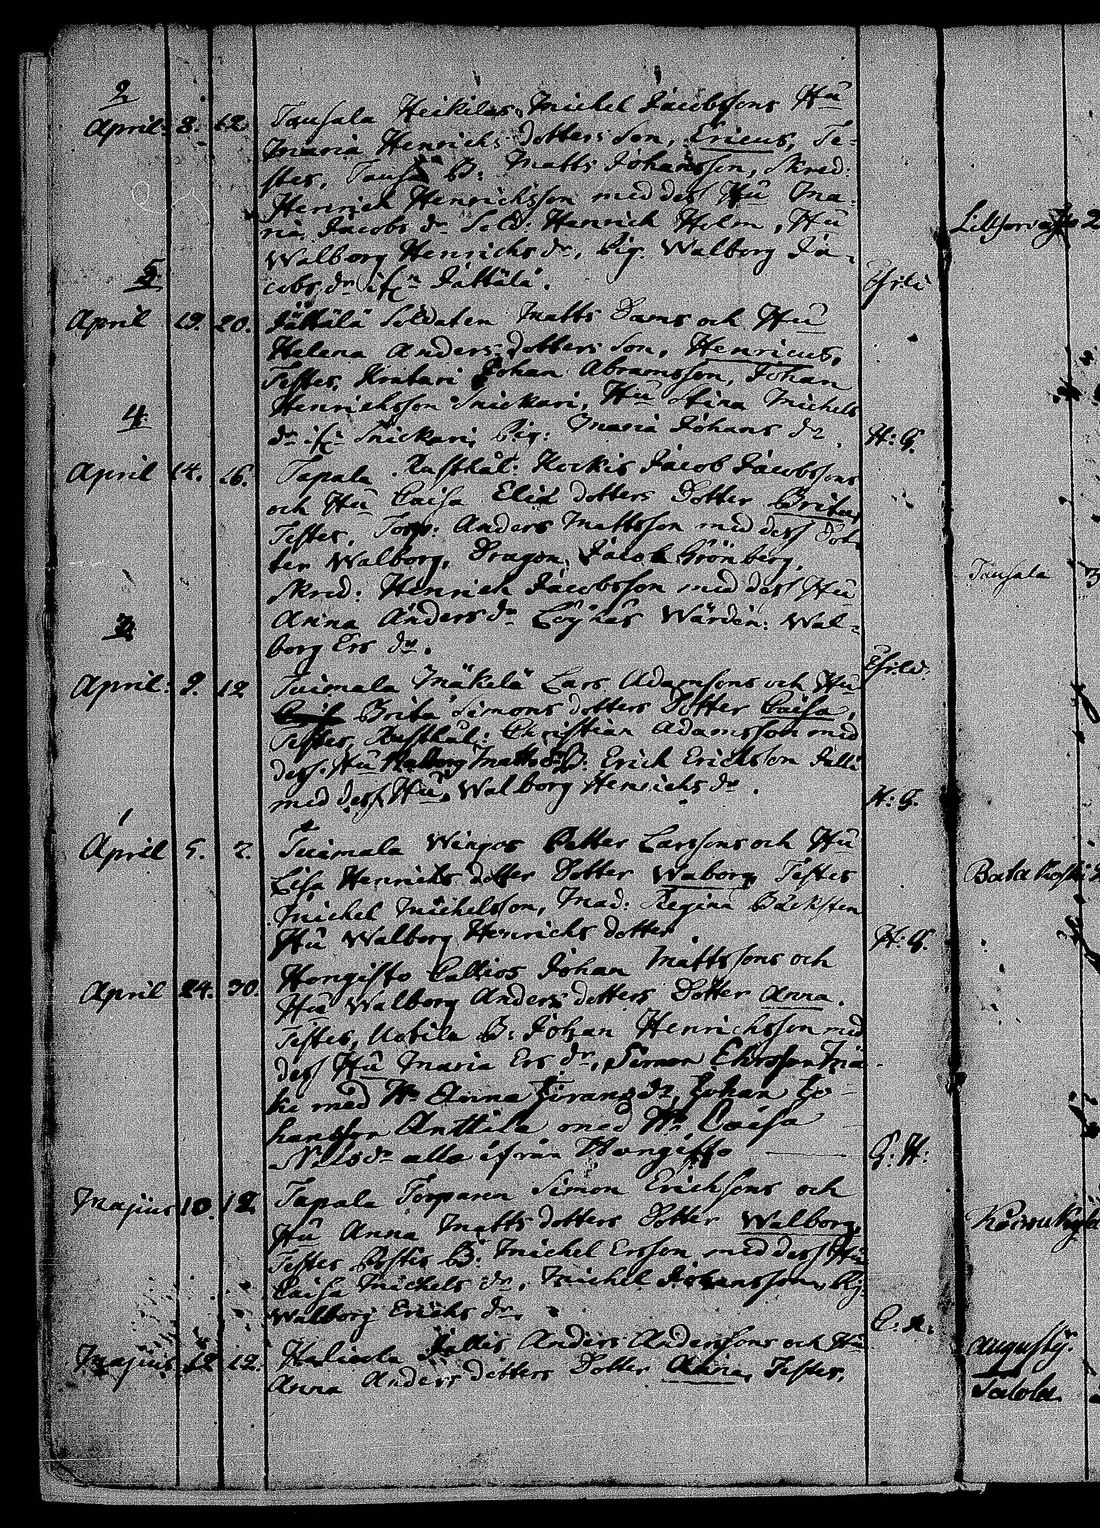 2
April. 8. 12. Tausala Heikilas, Michel Jacobssons Hu
Maria Henrichs dotters Son, Ericus, Te-
stes, Matts Johansson, Skred:
Henrich Henrichsson med dess Hu Ma-
ria Jacobs dr Sold. Henrich Holm, Hu
Walborg Henrichs dr, Pig. Walborg Ja-
cobs dr ifr Jättälä.
5
April 19. 20. Jättälä Soldaten Matts Dams och Hu
Helena Anders dotters Son, Henricus,
Testes, Johan Abramsson, Johan
Henrichsson Snickari, Hu Stina Michels
dr if: Snickari, Pig: Maria Johans dr. H: G.
4.
April 14. 16. Tapala Rusthål: Kockis Jacob Jacobssons
och Hu Caisa Eliæ dotters Dotter Brita,
Testes, Torp: Anders Mattsson med dess Dot-
ter Walborg, Dragon: Jacob Grönberg,
Skred: Henrich Jacobsson med dess Hu
Anna Anders dr Wärdin: Wal-
borg Ers dr.
3
April: 9. 12 Tuimala Mäkelä Lars Adamsons och Hu
Brita Simons dotters Dotter Caisa,
Testes, Rusthål: Christian Adamsson med
dess Hu Walborg Matts dr B: Erick Ericksson
med dess Hu Walborg Henrichs dr. H: G.
1
April 5. 7. Tuimala Wingos Petter Larssons och Hu
Lisa Henrichs dotter Dotter Waborg Testes
Michel Michelsson, Mad: Regina Bäcksten
Hu Walborg Henrichs dotter H: G.
April 24. 30. Hongisto Callios Johan Mattssons och
Hu Walborg Anders dotters Dotter Anna.
Testes, B: Johan Henrichsson med
dess Hu Maria Ers dr, Simon
ki med Hu Anna dr, Johan Jo-
hansson Anttila med Hu Caisa
Nils dr alla ifrån Hongisto G: H:
Majius 10. 12. Tapala Torparen Simon Ericksons och
Hu Anna Matts dotters Dotter Walborg,
Testes B: Michel Ersson med dess Hu
Caisa Michels dr, Michel Johansson, Pig.
Walborg Ericks dr
Majius 12. Anders Anderssons och Hu
Anna Anders dotters Dotter Anna, Testes,
Tausala
Augusty.